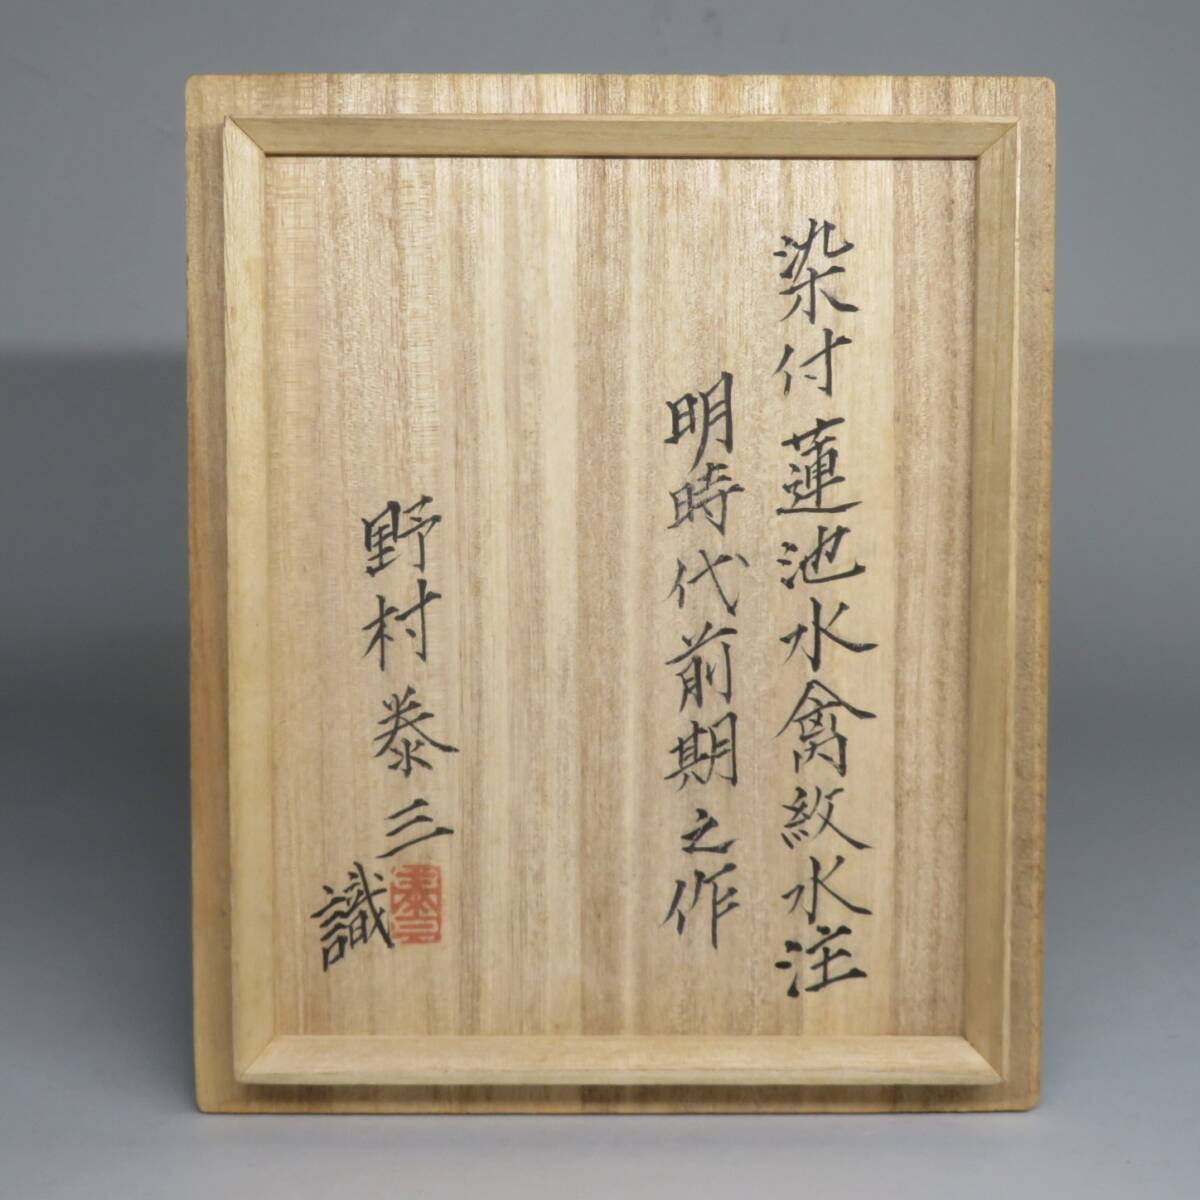 染付蓮池水禽紋水注
明時代前期之作
野村泰三識
泰三